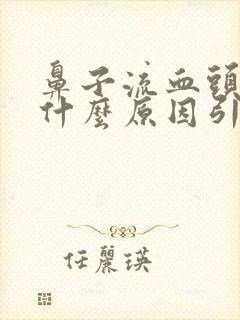 鼻子流血頭
什麼原因引
任麗瑛